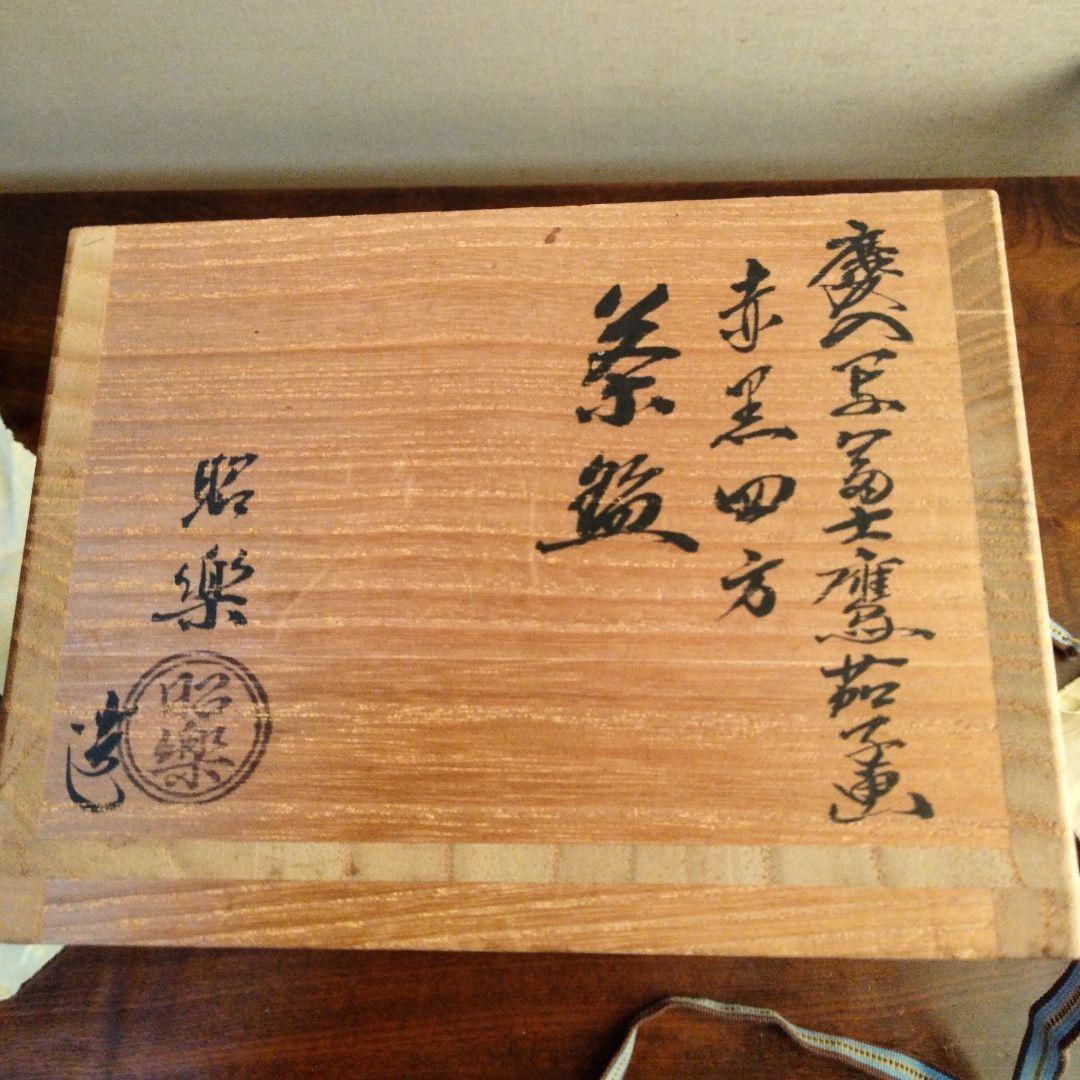 慶入写富士鷹茄子画
赤黒四方
茶盌
昭樂
造
昭樂